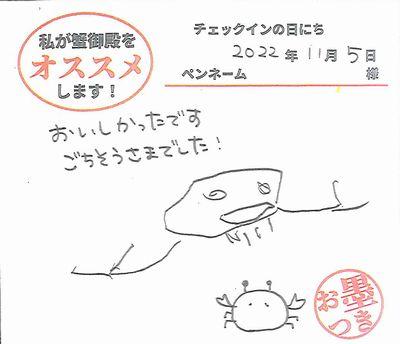 私が蟹御殿を
オススメ
します！
チェックインの日にち
2022年11月5日
ペンネーム 様
おいしかったです
ごちそうさまでした！
お墨つき